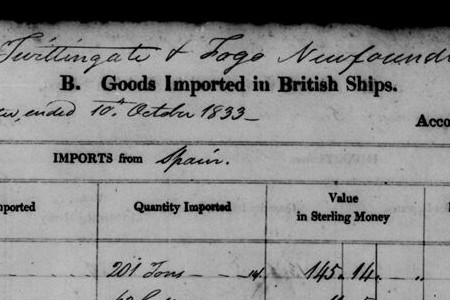 Twillingate & Fogo Newfound
B. Goods Imported in British Ships.
ended 10th October 1833
Acco
IMPORTS from Spain.
mported
Quantity Imported
Value
in Sterling Money
201 Tons 145. 14. "